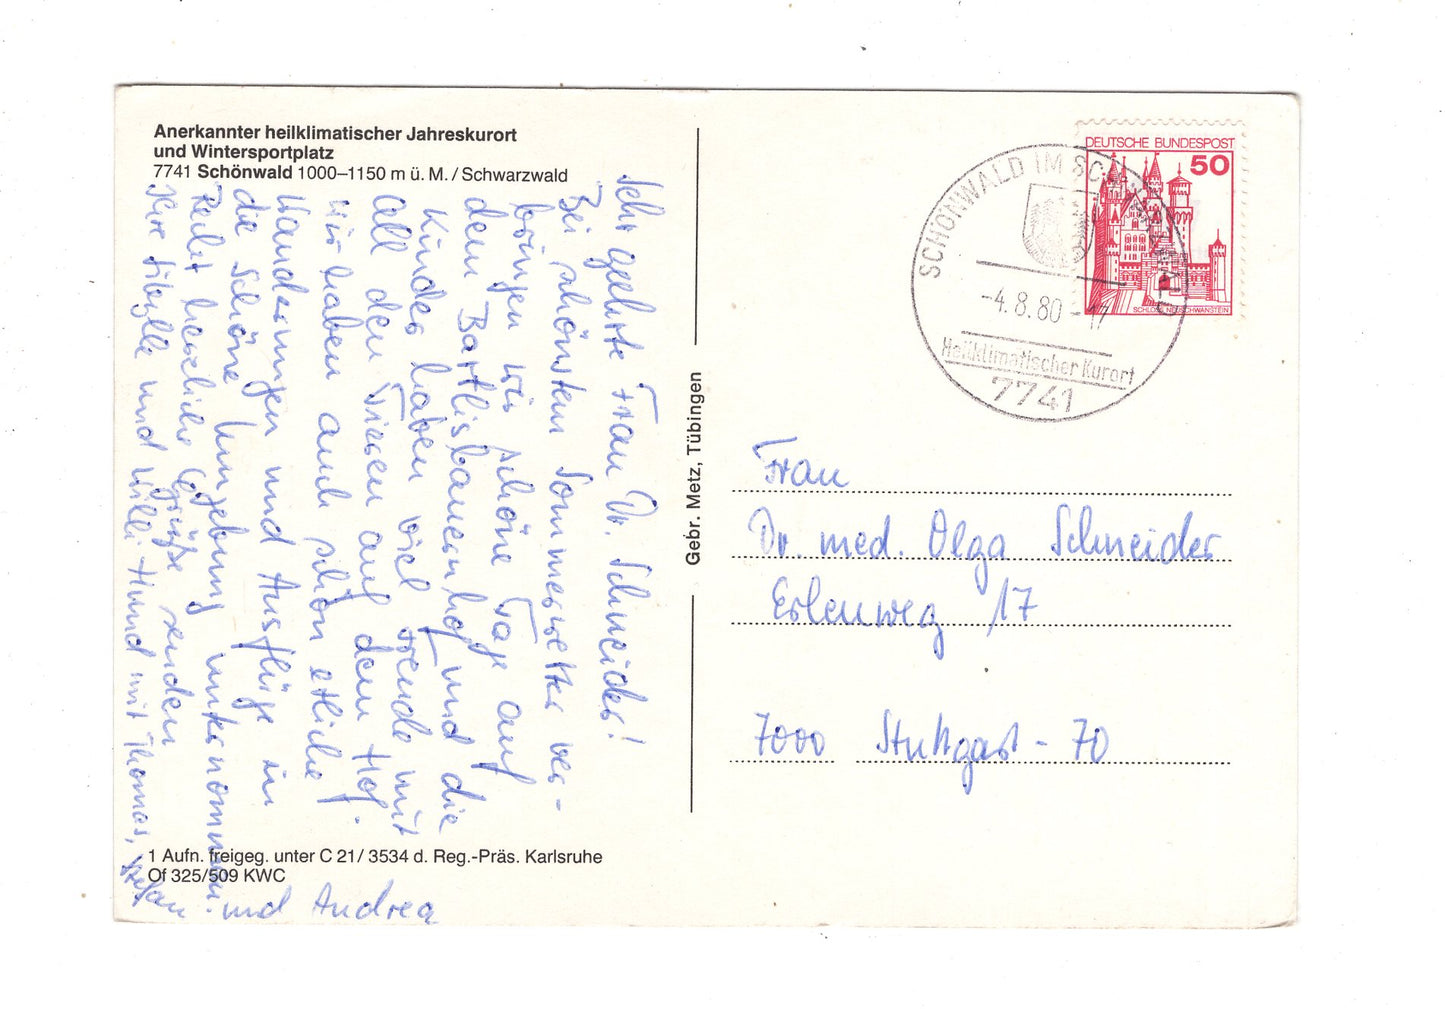 Anerkannter heilklimatischer Jahreskurort
und Wintersportplatz
7741 Schönwald 1000–1150 m ü. M. / Schwarzwald
Sehr geehrte Frau Dr. Schneider!
Bei schönstem Sommerwetter ver-
bringen wir schöne Tage auf
dem Bartlisbauernhof und die
Kinder haben viel Freude mit
all den Tieren auf dem Hof.
Wir haben auch schon etliche
Wanderungen und Ausflüge in
die schöne Umgebung unternommen.
Recht herzliche Grüße senden
Ihre Sibylle und Willi Hund mit Thomas,
Stefan und Andrea
1 Aufn. freigeg. unter C 21/ 3534 d. Reg.-Präs. Karlsruhe
Of 325/509 KWC
Gebr. Metz, Tübingen
DEUTSCHE BUNDESPOST
50
SCHLOSS NEUSCHWANSTEIN
SCHÖNWALD IM SCHWARZWALD
-4.8.80-17
Heilklimatischer Kurort
7741
Frau
Dr. med. Olga Schneider
Erlenweg 17
7000 Stuttgart - 70